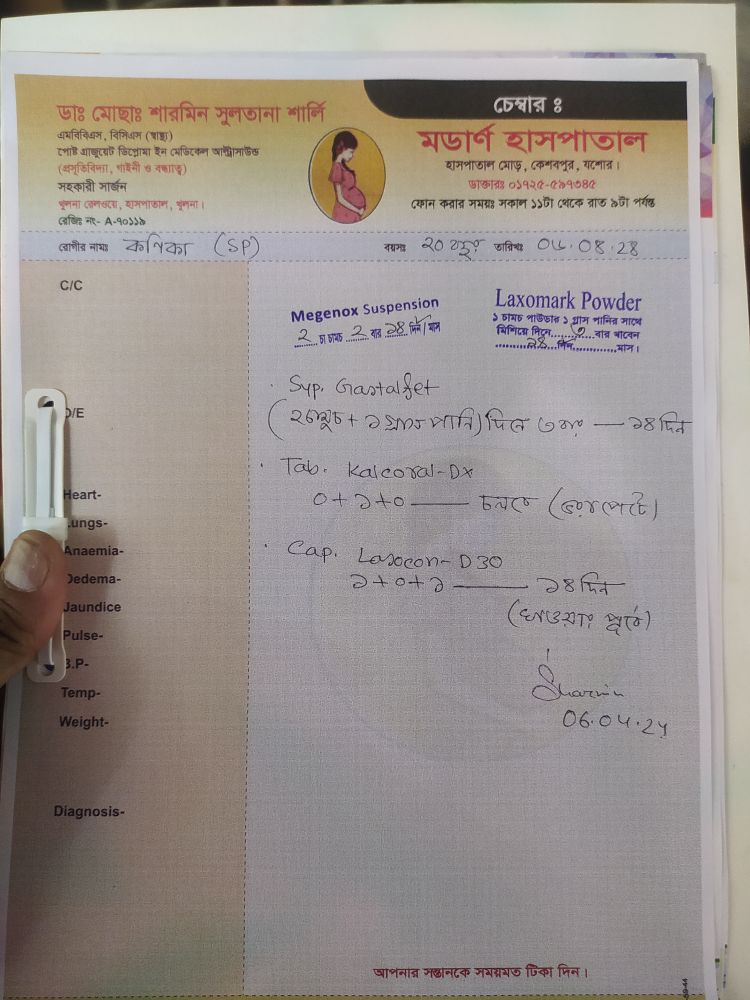 ডাঃ মোছাঃ শারমিন সুলতানা শার্লি
এমবিবিএস, বিসিএস (স্বাস্থ্য)
পোষ্ট গ্রাজুয়েট ডিপ্লোমা ইন মেডিকেল আল্ট্রাসাউন্ড
(প্রসূতিবিদ্যা, গাইনী ও বন্ধ্যাত্ব)
সহকারী সার্জন
খুলনা রেলওয়ে, হাসপাতাল, খুলনা।
রেজিঃ নং- A-৭০১১৯
চেম্বার ঃ
মডার্ণ হাসপাতাল
হাসপাতাল মোড়, কেশবপুর, যশোর।
ডাক্তারঃ ০১৭২৫-৫৯৭৩৪৫
ফোন করার সময়ঃ সকাল ১১টা থেকে রাত ৯টা পর্যন্ত
রোগীর নামঃ কনিকা (SP) বয়সঃ ২০ বছর তারিখঃ ০৬.০৪.২৪
C/C
O/E
Heart-
Lungs-
Anaemia-
Oedema-
Jaundice
Pulse-
B.P-
Temp-
Weight-
Diagnosis-
Megenox Suspension
২ চা চামচ ২ বার ১৪ দিন/মাস
Laxomark Powder
১ চামচ পাউডার ১ গ্লাস পানির সাথে
মিশিয়ে দিনে বার খাবেন
১৪ দিন মাস।
Syp. Gastalfet
(২চামুচ + ১ গ্লাস পানি) দিনে ৩ বার — ১৪ দিন
Tab. Kalcoral-DX
০+১+০ — চলবে (ভরাপেটে)
Cap. Lasocon-D30
১+০+১ — ১৪ দিন
(খাওয়ার পূর্বে)
Sharmin
06.04.24
আপনার সন্তানকে সময়মত টিকা দিন।